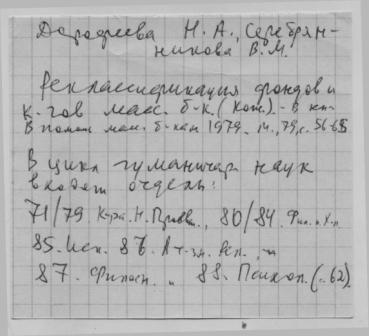 Дорофеева Н. А., Серебрян-
никова В. М.
Реклассификация фондов и
к-гов масс. б-к. (Кат.). - В кн.
В помощ мас. б-кам 1979. М., 79, с. 56-65
В цикл гуманитар наук
входят отделы:
71/79. Кул. Н. Просв., 80/84. Фил. и Х. л.
85. Иск. 86. Ат-зм. Рел.,
87. Филос. 88. Психол. (с. 62).